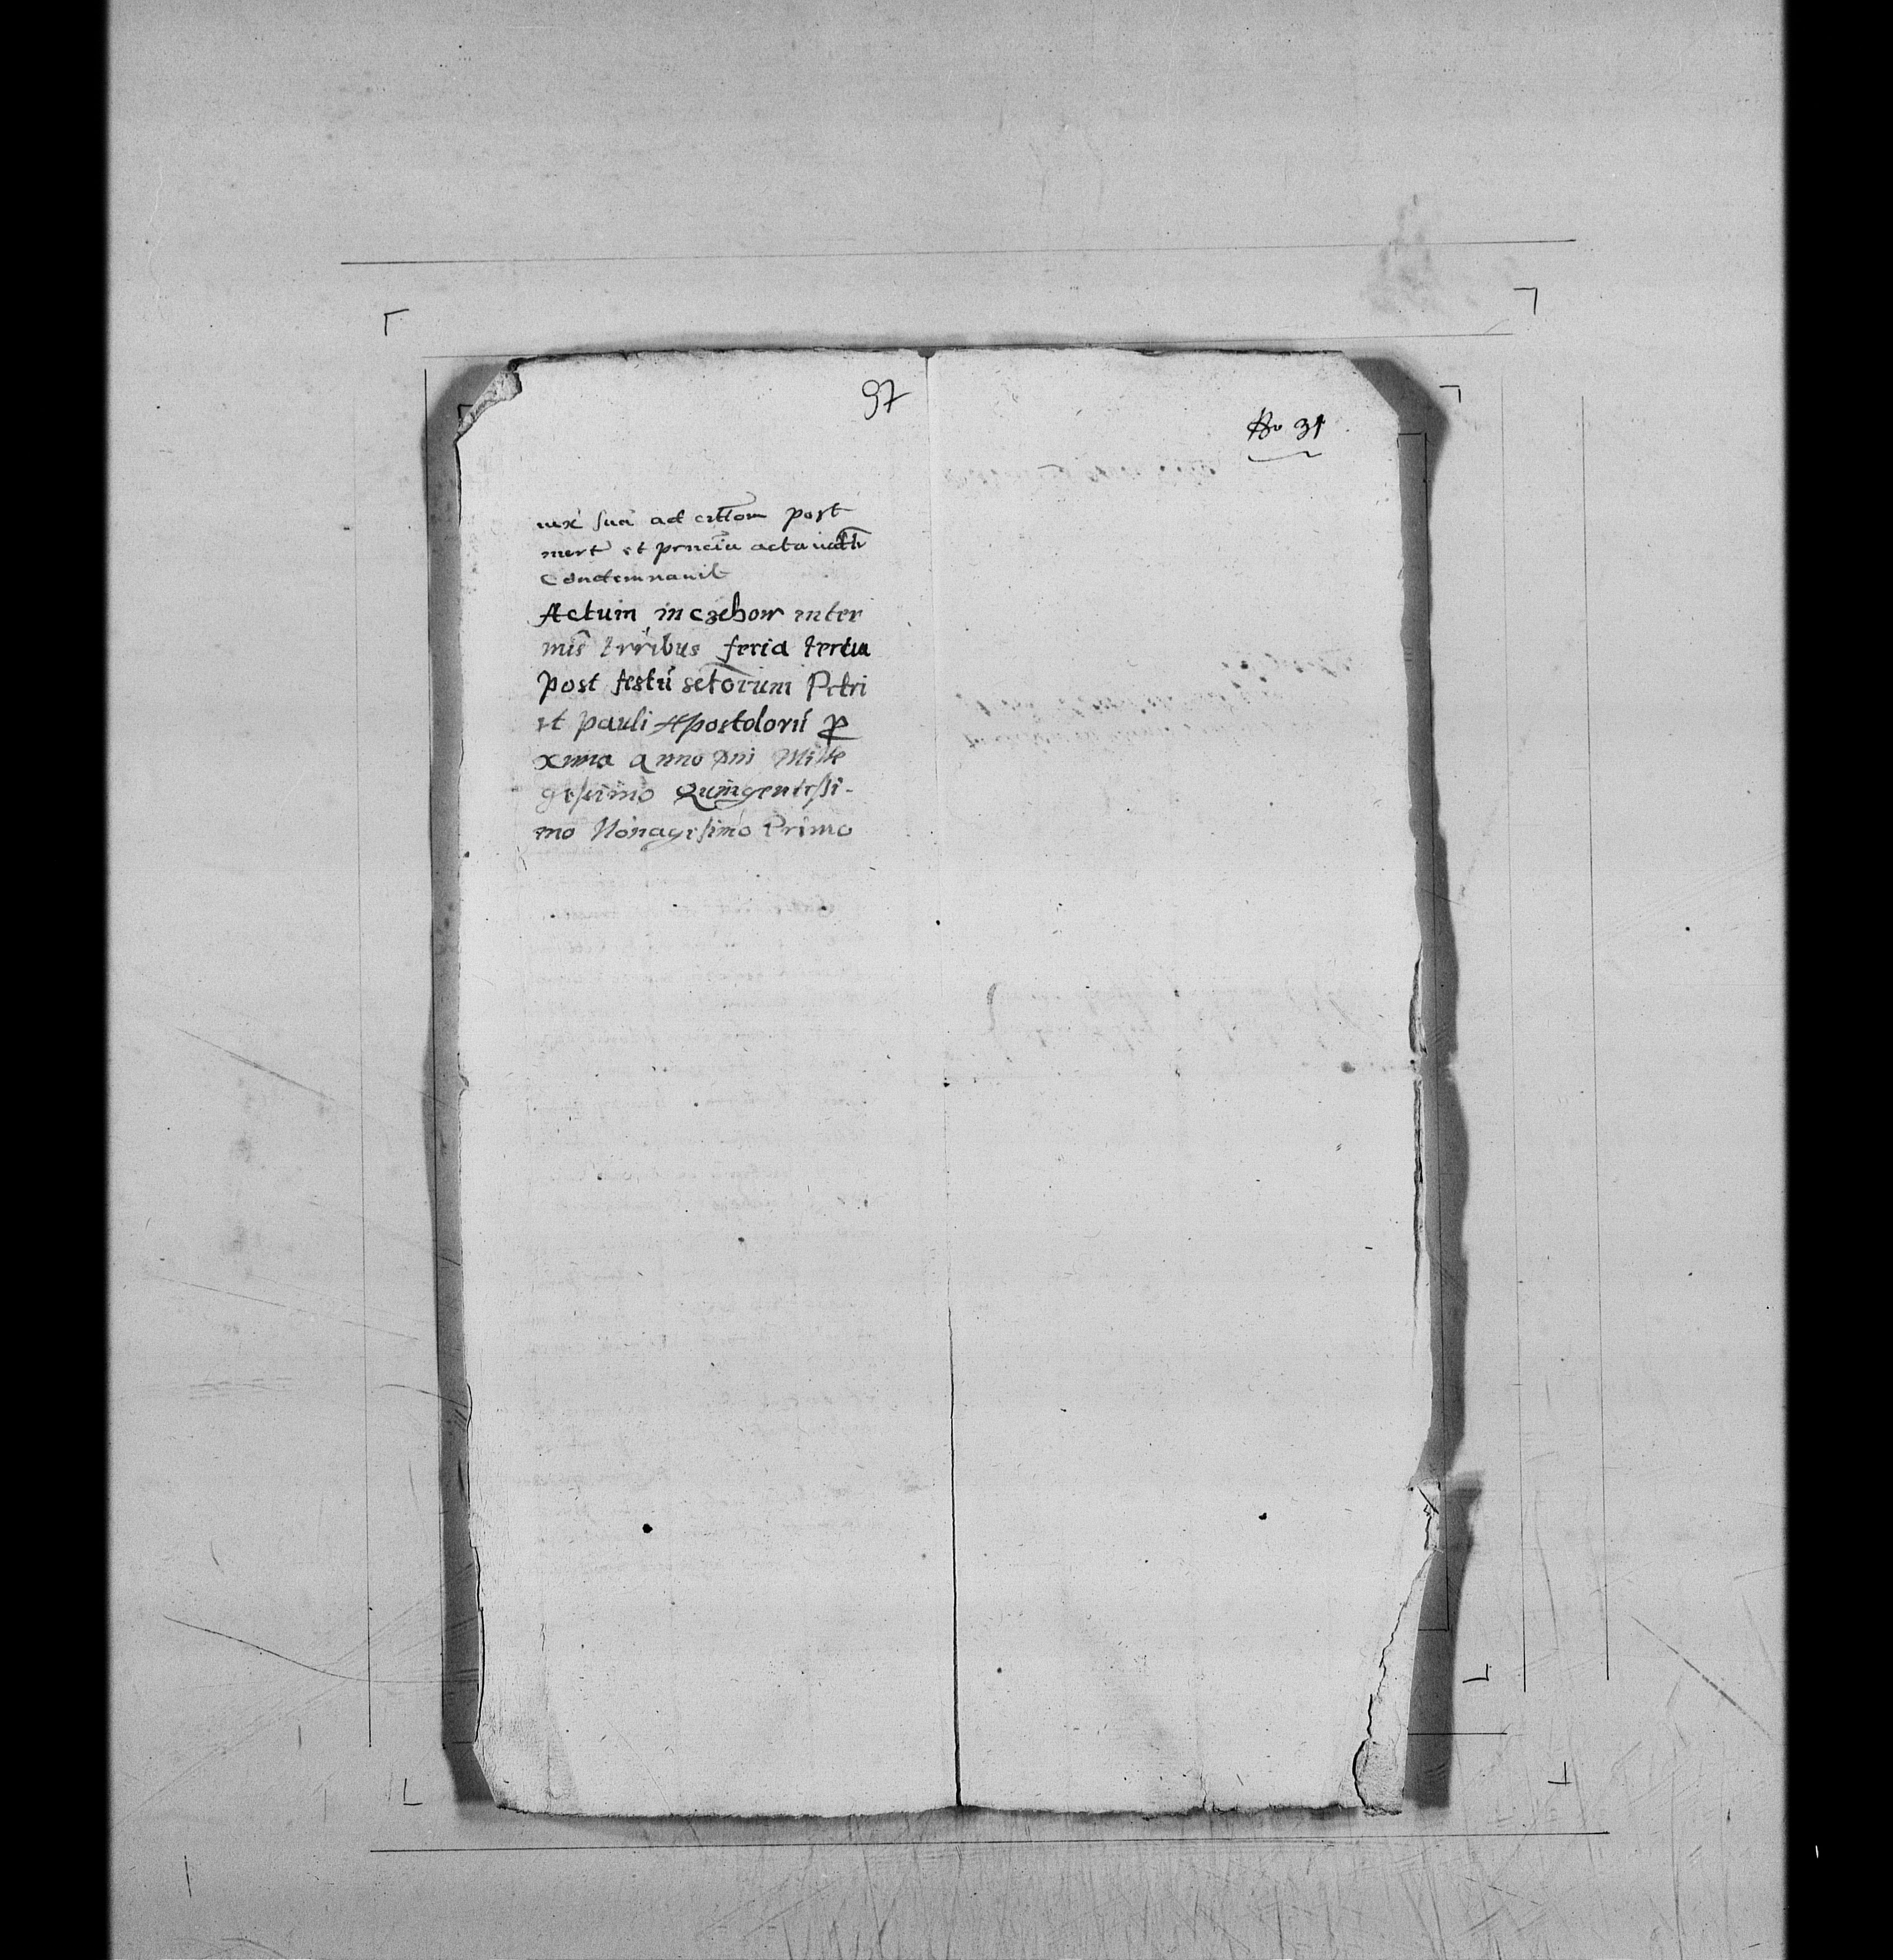 97
No 31
iux sua ad cittōm post
mert et pnciā acta
Condemnauit
Actum in czchow inter
mis trribus feria tertia
post festū sctorum Petri
et pauli Apostolorū p
xima anno Dni Mille
gesimo Quingentissi-
mo Nonagesimo Primo